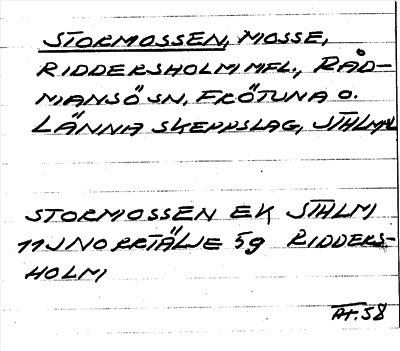 STORMOSSEN, MOSSE,
RIDDERSHOLM MFL., RÅD-
MANSÖ SN, FRÖTUNA O.
LÄNNA SKEPPSLAG, STHLM L
STORMOSSEN EK STHLM
11J NORRTÄLJE 5g RIDDERS-
HOLM
AT.58